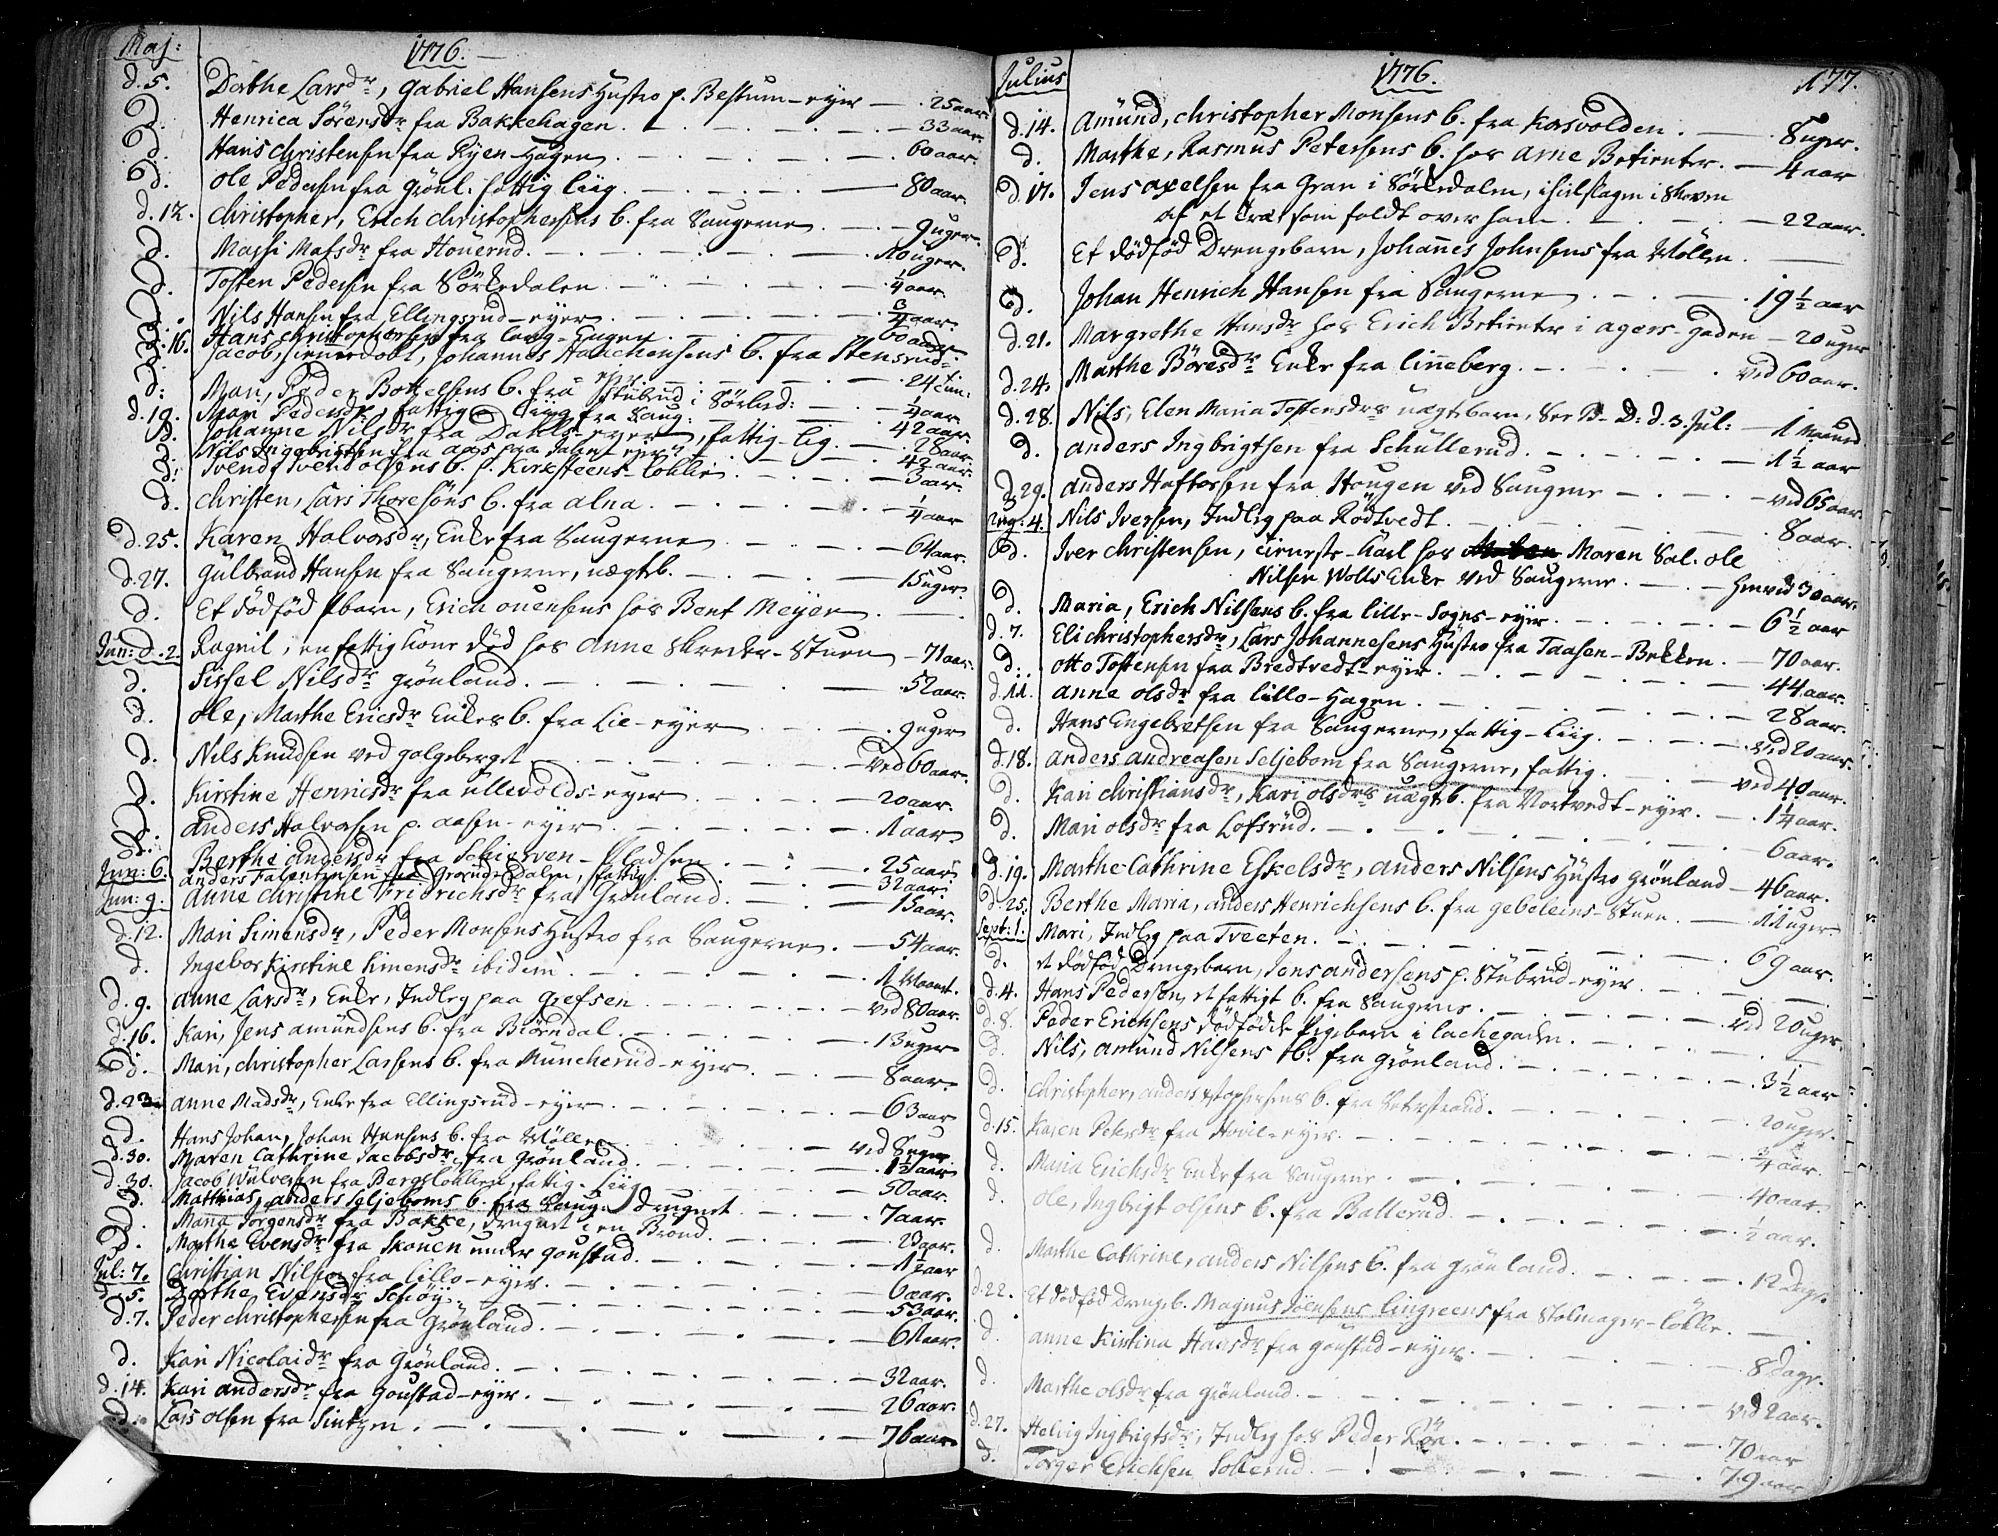 Maj: 1776.
d. 5. Dorthe Larsdr, Gabriel Hansens Hustro p. Bestum-eyer — 25 aar.
d. Henrica Sörensdr fra Bakkehagen. — 33 aar.
d. Hans Christensen fra Ryen-Hagen — 60 aar.
d. Ole Pedersen fra Grönl. fattig Liig. — 80 aar.
d. 12. Christopher, Erich Christophersens b. fra Saugerne — 9 uger.
d. Massi Matsdr fra Houerud. — 10 uger.
d. Tosten Pedersen fra Sörkedalen — 1/4 aar.
d. Nils Hansen fra Ellingsrud-eyer — 3/4 aar.
d. 16. Hans Christophersen fra Lang-Engen — 60 aar.
d. Jacob, hiemedöbt, Johannes Haachensens b. fra Stensrud-
eyer. — 24 tim:
d: Mari, Peder Bottelsens b. fra Stubrud i Sörked: — 1/4 aar.
d. 19. Mari Pedersdr, fattig Liig fra Saug: — 42 aar.
d. Johanne Nilsdr fra Dahls-eyer, fattig-Lig. — 28 aar.
d. Nils Ingebrigtsen fra Aas paa Dahls eyer — 42 aar.
d: Svend, Svend Olsens b. p. Kirksteens-Lökke — 3 aar.
d. Christen, Lars Thoresöns b. fra Alna. — 1/4 aar
d. 25. Karen Halvorsdr, Enke fra Saugerne — 64 aar.
d. 27. Gulbrand Hansen fra Saugerne, uægteb. — 15 uger.
d. Et dödföd Pbarn, Erich Ouensens hos Bent Meyer —
Jun: d. 2. Ragnil, en fattig Kone död hos Anne Skreder-Stuen — 71 aar.
d. Sissel Nilsdr Grönland. — 52 aar.
d. Ole, Marthe Ericsdr Enkes b. fra Lie-eyer — 9 uger
d. Nils Knudsen ved Galgeberget — ved 60 aar.
d. Kirstine Henricsdr fra Ullevolds-eyer — 20 aar.
d. Anders Halvorsen p. Aasen-eyer — 1 aar
d. Berthe Andersdr fra Schierven-Pladsen — 25 aar
Jun: 6. Anders Falentinsen fra Grorud-Dalen, fattig. — 32 aar:
Jun: 9. Anne Christine Fridrichsdr fra Grönland. — 15 aar.
d. 12. Mari Simensdr, Peder Monsens Hustro fra Saugerne. — 54 aar.
d. Ingebor Kirstine Simensdr ibidem. — 1 Maanet.
d. 9. Anne Larsdr, Enke, Indleg paa Grefsen — ved 80 aar.
d. 16. Kari, Jens Amundsens b. fra Biörndal. — 13 uger
d. Mari, Christopher Larsens b. fra Muncherud-eyer — 8 aar.
d. 23. Anne Madsdr, Enke fra Ellingsrud-eyer — 63 aar
d. Hans Johan, Johan Hansens b. fra Möllen — ved 8 uger
d. 30. Maren Cathrine Jacobsdr fra Grönland. — 1 1/2 aar
d. 30. Jacob Wulversen fra Bergslökken, fattig-Liig — 50 aar.
d. Matthias, Anders Seljeboms b. fra Saug. drugnet — 7 aar.
d. Maria Jorgensdr fra Bakke, drugnet i en Brönd. — 23 aar.
d. Marthe Evensdr fra Skouen under Goustad. — 1 1/2 aar
Jul: 7. Christian Nilsen fra Lillo-eyer. — 6 aar.
d. 5. Dorthe Evensdr Schöy. — 53 aar.
d. 7. Peder Christophersen fra Grönland. — 61 aar.
d. Kari Nicolaidr fra Grönland. — 32 aar.
d. 14. Kari Andersdr fra Goustad-eyer. — 26 aar.
d. Lars Olsen fra Sintzen. — 76 aar.
Julius 1776. 177.
d. 14. Amund, Christopher Monsens b. fra Korsvolden. — 8 uger.
d. Marthe, Rasmus Petersens b. hos Arne Betienter. — 4 aar
d. 17. Jens Axelsen fra Gran i Sörkedalen, ihielslagen i Skoven
af et Træ som faldt over ham — 22 aar.
d. Et dödföd Drengebarn, Johannes Johnsens fra Möllen. —
d. Johan Henrich Hansen fra Saugerne — 19 1/2 aar
d. 21. Margrethe Hansdr hos Erich Betienter i Agers-Gaden — 20 uger
d. 24. Marthe Böresdr Enke fra Linneberg. — ved 60 aar.
d. 28. Nils, Elen Maria Tostensdrs uægtebarn, See B- D: d. 3. Jul: — 1 Maaned
d. Anders Ingbrigtsen fra Schullerud. — 1 1/2 aar
d. 29. Anders Haftorsen fra Haugen ved Saugene — ved 65 aar.
Aug: 4. Nils Iversen, Indleg paa Rödtvedt. — 8 aar.
d. Iver Christensen, tieneste-Karl hos Maren Sal. Ole
Nilsen Wolls Enke ved Saugerne. — henved 30 aar.
d. Maria, Erich Nilsens b. fra Lille-Sogns-eyer. — 6 1/2 aar
d. 7. Eli Christophersdr, Lars Johannesens Hustro fra Taasen-Bekken. — 70 aar.
d. Otto Tostensen fra Bredtvedt-eyer. — 44 aar.
d. 11. Anne Olsdr fra Lillo-Hagen. — 28 aar.
d. Hans Engebretsen fra Saugerne, fattig-Liig. — ved 20 aar.
d. 18. Anders Andreasen Seljebom fra Saugerne, fattig. — ved 40 aar.
d. Kari Christiansdr, Kari Olsdrs uægteb. fra Nortvedt-eyer. — 1 1/4 aar.
d. Mari Olsdr fra Lofsrud. — 6 aar.
d. 19. Marthe Cathrine Eskelsdr, Anders Nilsens Hustro Grönland — 46 aar.
d. 25. Berthe Maria, Anders Henrichsens b. fra Gebeleins-Stuen — 11 uger.
Sept: 1. Mari, Indleg paa Tveeten. — 69 aar.
d. et dödföd Drengebarn, Jens Andersens p. Stubrud-eyer. —
d. 4. Hans Pedersen, et fattigt b. fra Saugerne. — ved 20 uger.
d. 8. Peder Erichsens dödfödte Pigebarn i Lachegaden. —
d. Nils, Amund Nilsens b. fra Grönland. — 3 1/2 aar
d. Christopher, Anders stophersens b. fra — 20 uger.
d. 15. Karen Pedersdr fra Hovel-eyer. — 3/4 aar.
d. Maria Erichsdr Enke fra Saugerne. — 40 aar.
d. Ole, Ingbrigt Olsens b. fra Ballerud. — 1/2 aar.
d. Marthe Cathrine, Anders Nilsens b. fra Grönland. — 12 dage.
d. 22. Et dödföd Drengeb. Magnus Jöensens Lingreens fra Stolmager-Lökke. —
d. Anne Kirstina Hansdr fra Goustad-eyer. — 8 dage.
d. Marthe Olsdr fra Grönland. — ved 2 aar.
d. 27. Helvig Ingbrigtsdr, Indleg hos Peder Röa. — 70 aar
d. Torger Erichsen Sollerud. — 79 aar